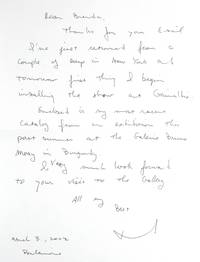 Dear Brenda,
Thanks for your Email
I've just returned from a
couple of days in New York and
tomorrow first thing I begin
installing the show at
Enclosed is my most recent
Catalog from an exhibition this
past summer at the Galerie Bruno
Mory in Burgundy
I very much look forward
to your visit to the Gallery
All my
Best
March 3, 2002